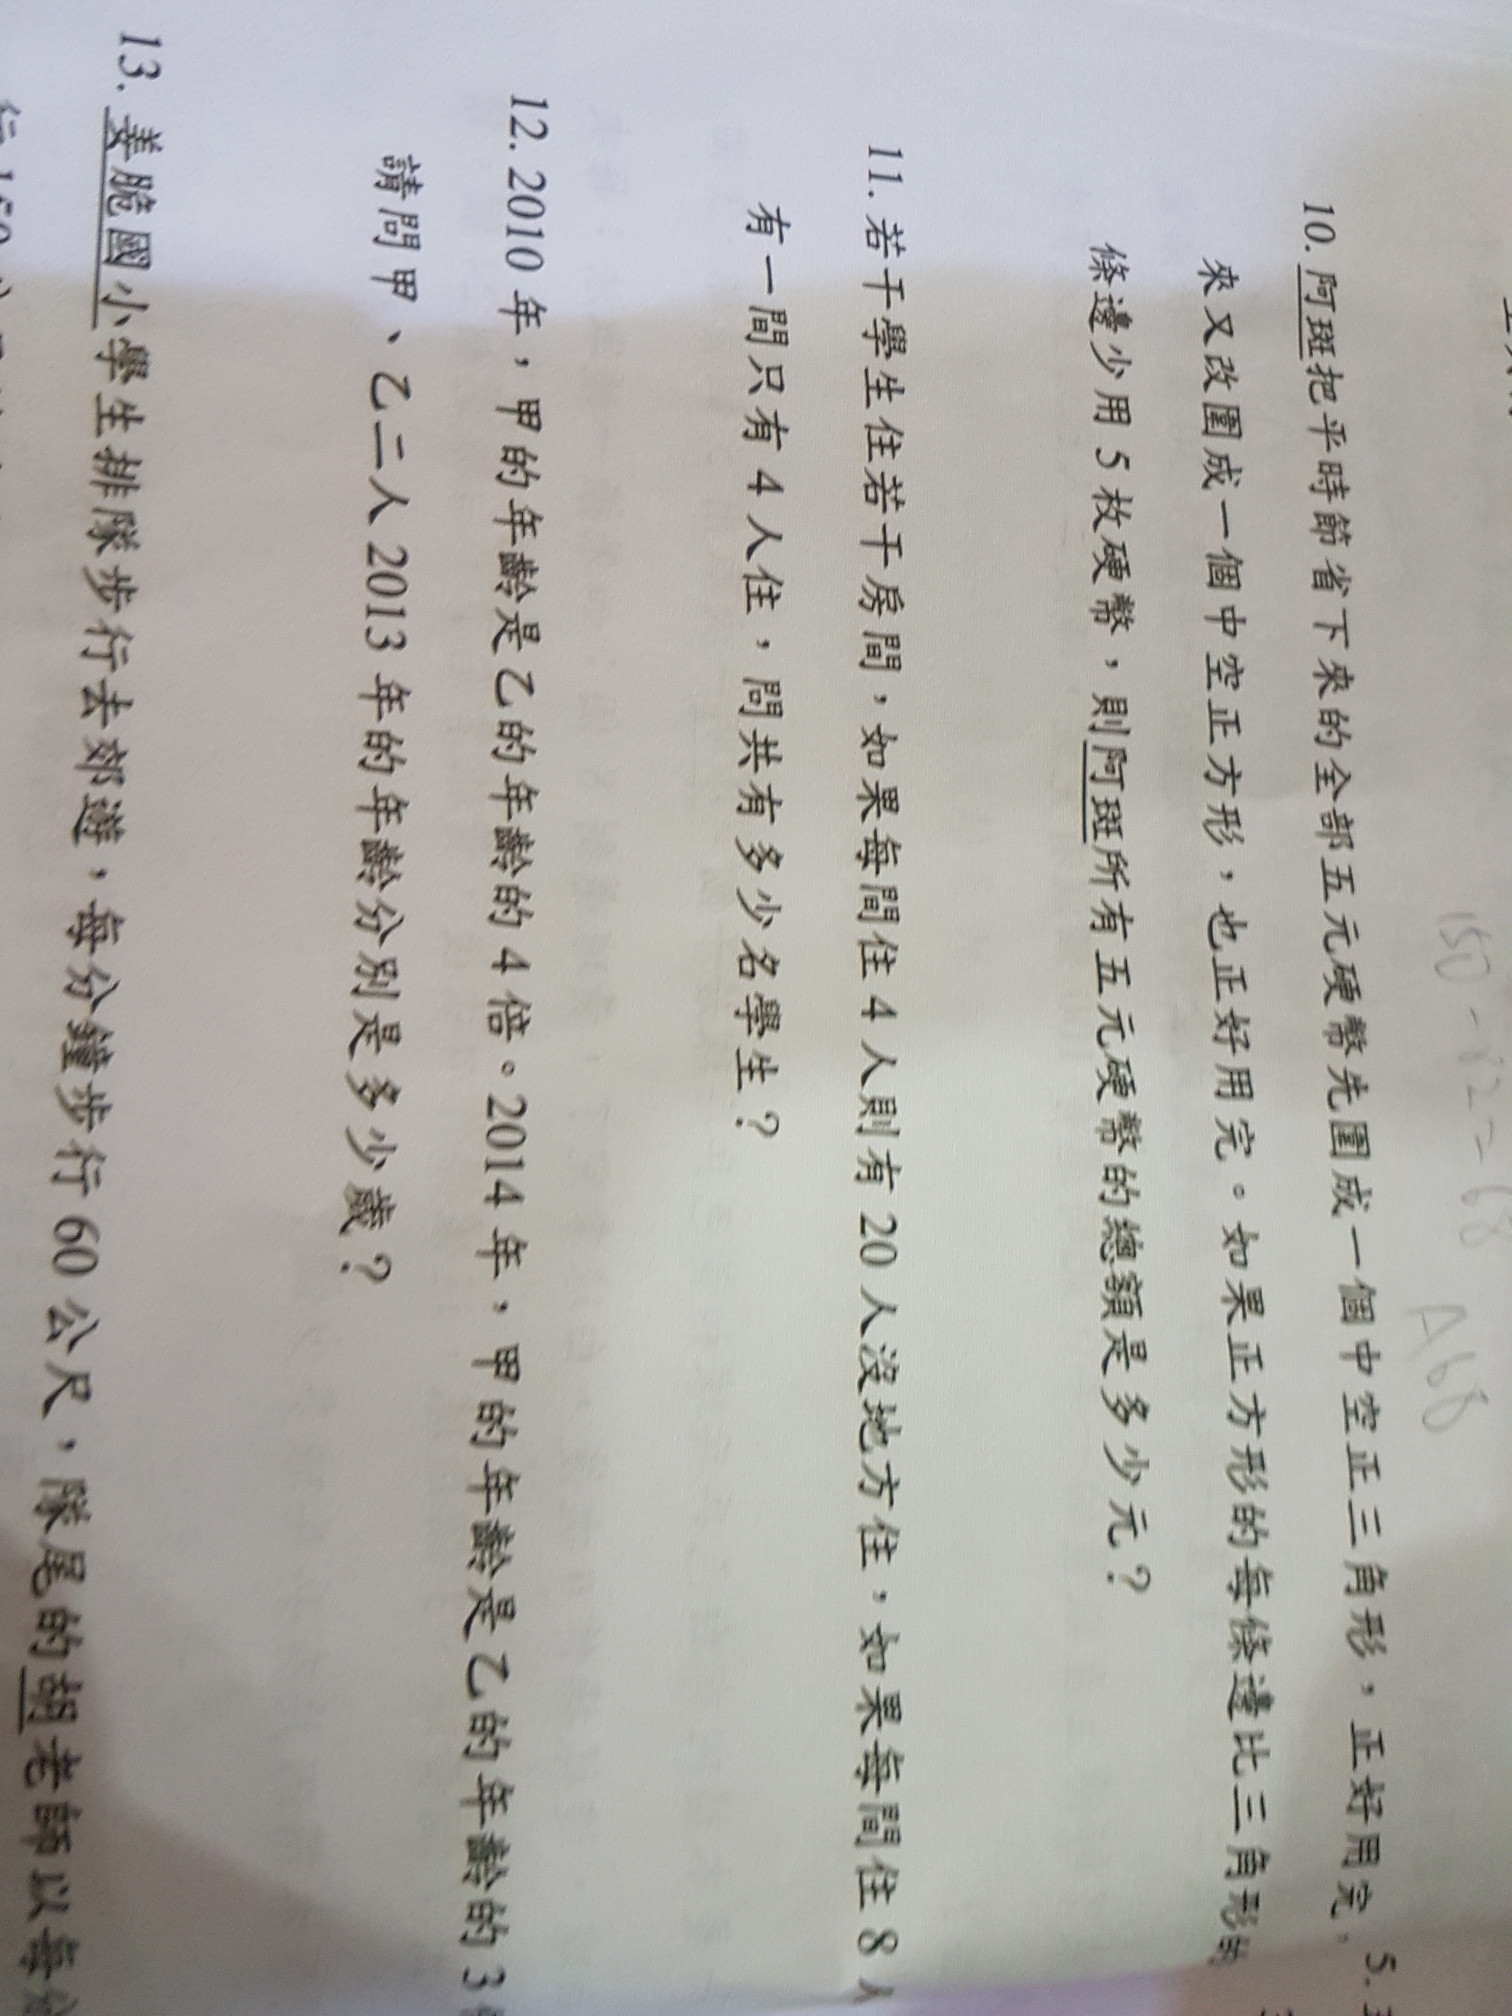 150-82=68
A68
10. 阿斑把平時節省下來的全部五元硬幣先圍成一個中空正三角形，正好用完，
來又改圍成一個中空正方形，也正好用完。如果正方形的每條邊比三角形的
條邊少用 5 枚硬幣，則阿斑所有五元硬幣的總額是多少元？
11. 若干學生住若干房間，如果每間住 4 人則有 20 人沒地方住，如果每間住 8 人
有一間只有 4 人住，問共有多少名學生？
12. 2010 年，甲的年齡是乙的年齡的 4 倍。2014 年，甲的年齡是乙的年齡的 3
請問甲、乙二人 2013 年的年齡分別是多少歲？
13. 姜脆國小學生排隊步行去郊遊，每分鐘步行 60 公尺，隊尾的胡老師以每分
5.